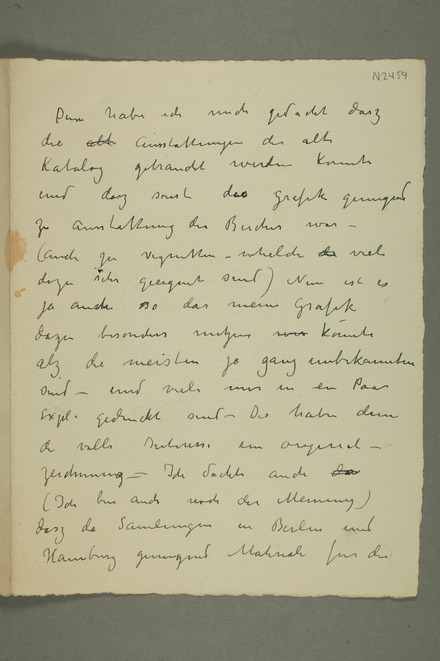 N 2459
Dann habe ich auch gedacht dasz
die alte Ausstattungen der alte
Katalog gebraucht werden konnte
und dasz sonst die Grafik genugend
zu Ausstattung des Buches war –
(auch zu vignetten – welche da viel
dazu sehr geeignet sind) Nun ist es
ja auch so das meine Grafik
dazu besonders nutzen konnte
als die meisten ja ganz unbekannten
sind – und viele nur in ein Paar
Expl. gedruckt sind – Die haben dann
volle Interesse ein original –
zeichnung – Ich dachte auch da
(Ich bin auch noch der Meinung)
dasz die Samlungen in Berlin und
Hamburg genugend Materiale fur die